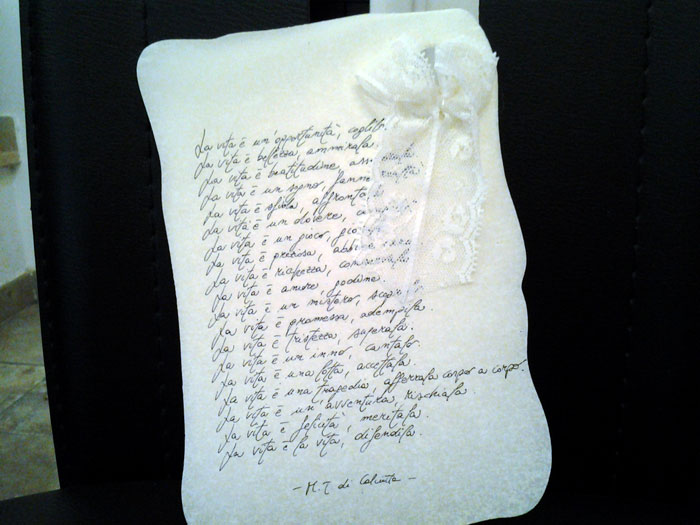 La vita è un'opportunità, coglila.
La vita è bellezza, ammirala.
La vita è beatitudine, assaporala.
La vita è un sogno, fanne realtà.
La vita è sfida, affrontala.
La vita è un dovere, compilo.
La vita è un gioco, giocalo.
La vita è preziosa, abbine cura.
La vita è ricchezza, conservala.
La vita è amore, godine.
La vita è un mistero, scoprilo.
La vita è promessa, adempila.
La vita è tristezza, superala.
La vita è un inno, cantalo.
La vita è una lotta, accettala.
La vita è una tragedia, afferrala corpo a corpo.
La vita è un'avventura, rischiala
La vita è felicità, meritala.
La vita è la vita, difendila.
- M.T. di Calcutta -